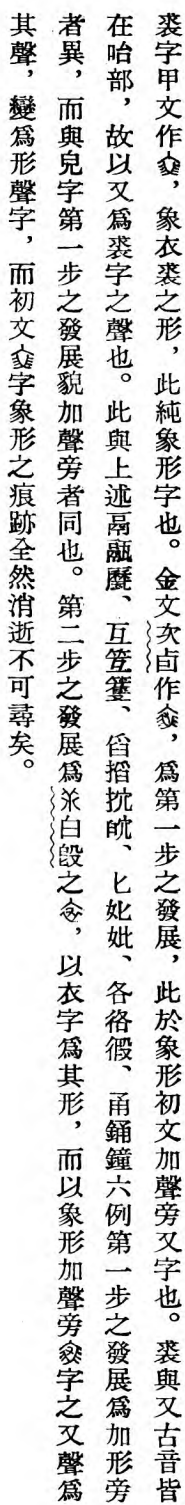 裘字甲文作，象衣裘之形，此純象形字也。金文次卣作，爲第一步之發展，此於象形初文加聲旁又字也。裘與又古音皆
在咍部，故以又爲裘字之聲也。此與上述鬲䰛歷、互笠䇘、舀搯抌㧈、匕妣妣、各𢓜徦、甬鋪鐘六例第一步之發展爲加形旁
者異，而與皃字第一步之發展貌加聲旁者同也。第二步之發展爲𣲙白𣪘之，以衣字爲其形，而以象形加聲旁字之又聲爲
其聲，變爲形聲字，而初文字象形之痕跡全然消逝不可尋矣。